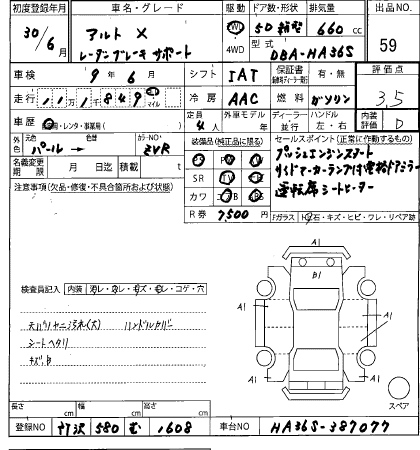 初度登録年月 車名・グレード 駆動 ドア数・形状 排気量 出品NO.
30/6月 アルト X 2WD 5D 660cc 59
レーダーブレーキ サポート 4WD 型式 DBA-HA36S
車検 9年 6月 シフト IAT 保証書 有・無 評価点
走行 マイル 冷房 AAC 燃料 ガソリン 3.5
車歴 レンタ・事業用 定員 4人 外車モデル 年 ディーラー 並行 ハンドル 左・右 内装評価 D
外色 元色 パール→ カラーNO. ZVR 装備品(純正品に限る) セールスポイント(正常に作動するもの)
名義変更期限 月 日迄 積載 t プッシュエンジンスタート
注意事項(欠品・修復・不具合箇所および状態) SR サイドマーカーランプ付電格ドアミラー
カワ 運転席シートヒーター
R券 7500円 Fガラス 石・キズ・ヒビ・ワレ・リペア跡
検査員記入 内装 コゲ・穴
天バリヤニ汚れ(大) ハンドルカバー
シートヘタリ
キズB
A1
B1
A1 A1
A1 A1
A1
スペア
長さ cm 幅 cm 高さ cm
登録NO 580 む 1608 車台NO HA36S-387077